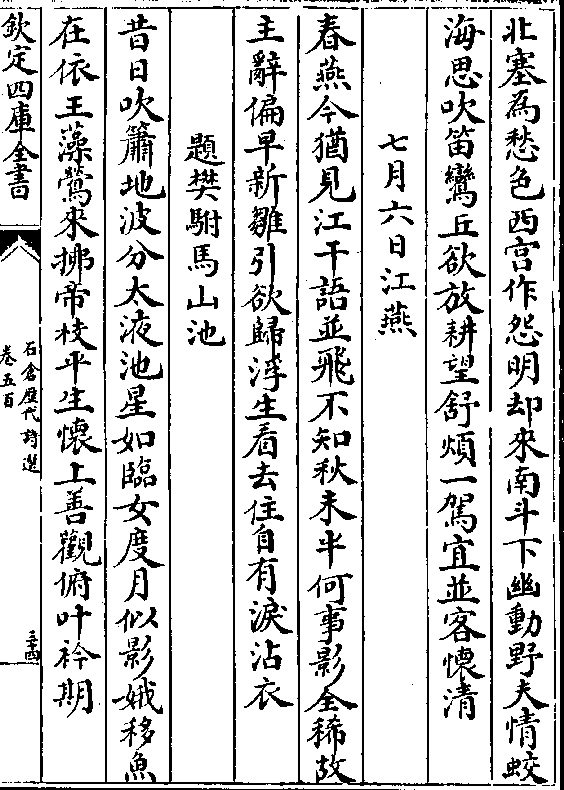 北塞為愁色西宫作怨明却來南斗下幽動野夫情蛟
海思吹笛鸞丘欲放耕望舒煩一駕宜並客懷清
七月六日江燕
春燕今猶見江干語並飛不知秋未半何事影全稀故
主辭偏早新雛引欲歸浮生看去住自有淚沾衣
題樊駙馬山池
昔日吹簫地波分太液池星如臨女度月似影娥移魚
在依王藻鶯來拂帝枝平生懷上善觀俯叶衿期
欽定四庫全書
石倉歷代詩選
卷五百
三十四